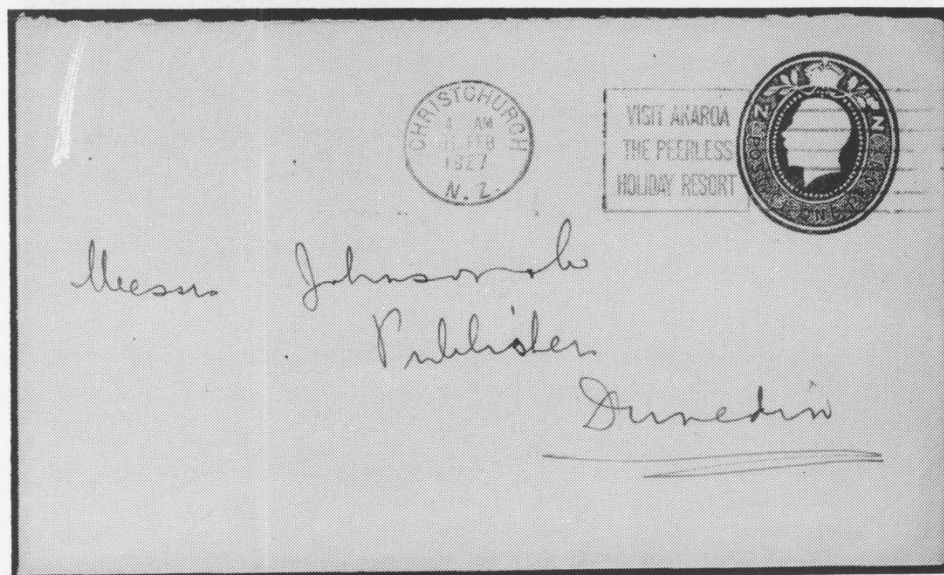 CHRISTCHURCH
4 AM
11 FEB
1927
N.Z.
VISIT AKAROA
THE PEERLESS
HOLIDAY RESORT
N Z
POSTAGE ONE PENNY
Messrs Johnson & Co
Publisher
Dunedin